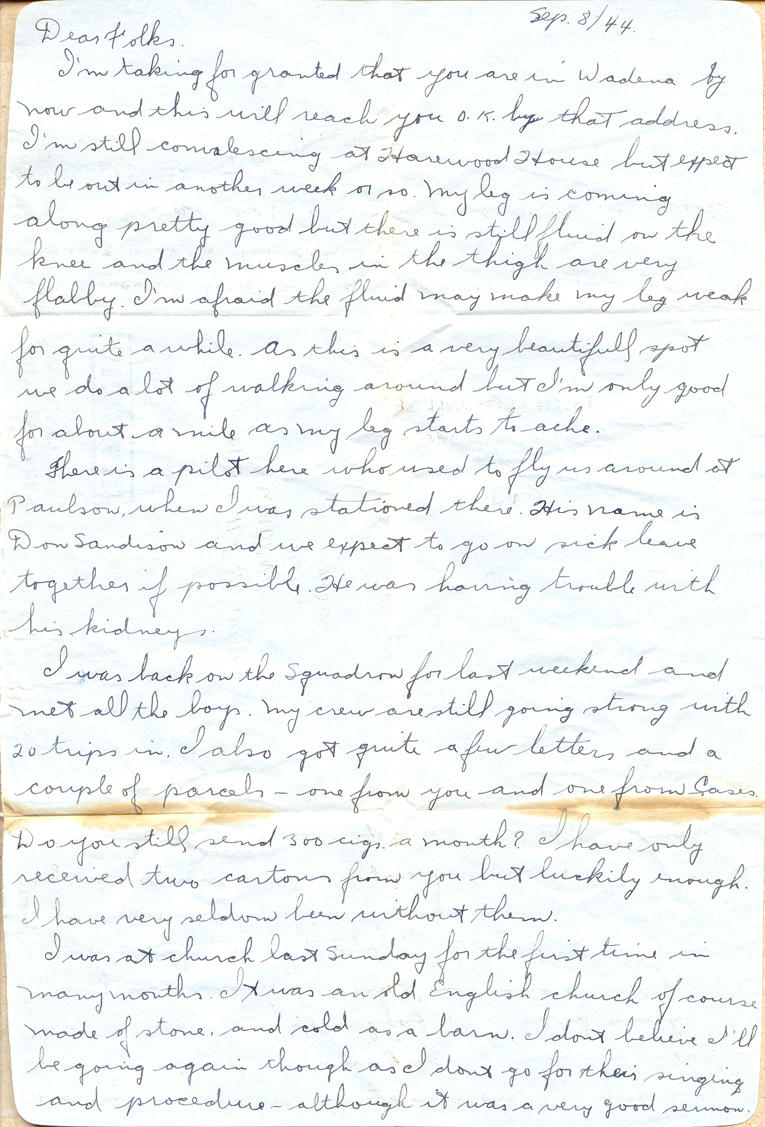 Sep. 8/44.
Dear Folks.
I'm taking for granted that you are in Wadena by
now and this will reach you O.K. by that address.
I'm still convalescing at Harewood House but expect
to be out in another week or so. My leg is coming
along pretty good but there is still fluid on the
knee and the muscles in the thigh are very
flabby. I'm afraid the fluid may make my leg weak
for quite a while. As this is a very beautifull spot
we do a lot of walking around but I'm only good
for about a mile as my leg starts to ache.
There is a pilot here who used to fly us around at
Paulson, when I was stationed there. His name is
Don Sandison and we expect to go on sick leave
together if possible. He was having trouble with
his kidneys.
I was back on the Squadron for last weekend and
met all the boys. My crew are still going strong with
20 trips in. I also got quite a few letters and a
couple of parcels – one from you and one from
Do you still send 300 cigs. a month? I have only
received two cartons from you but luckily enough.
I have very seldom been without them.
I was at church last Sunday for the first time in
many months. It was an old English church of course
made of stone, and cold as a barn. I dont believe I'll
be going again though as I dont go for their singing
and procedure – although it was a very good sermon.